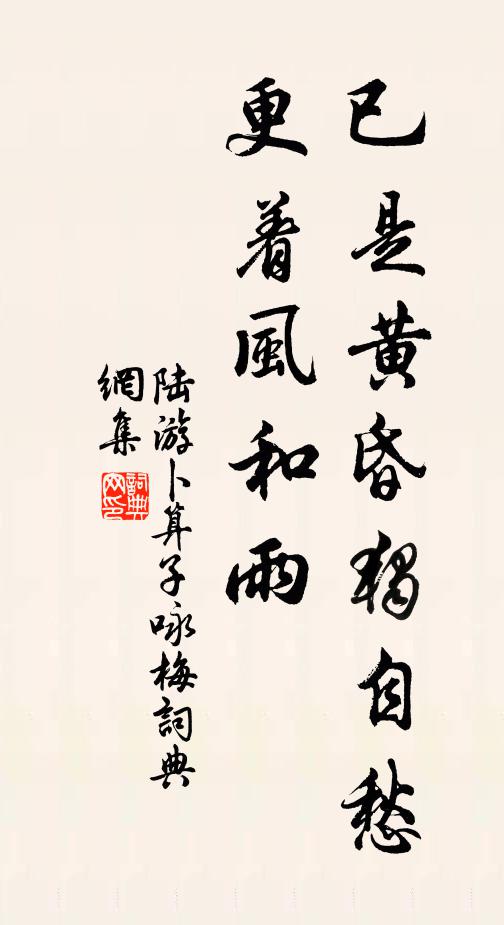 已是黄昏獨自愁
更着風和雨
陆游卜算子咏梅詞典
網集
詞典
网印